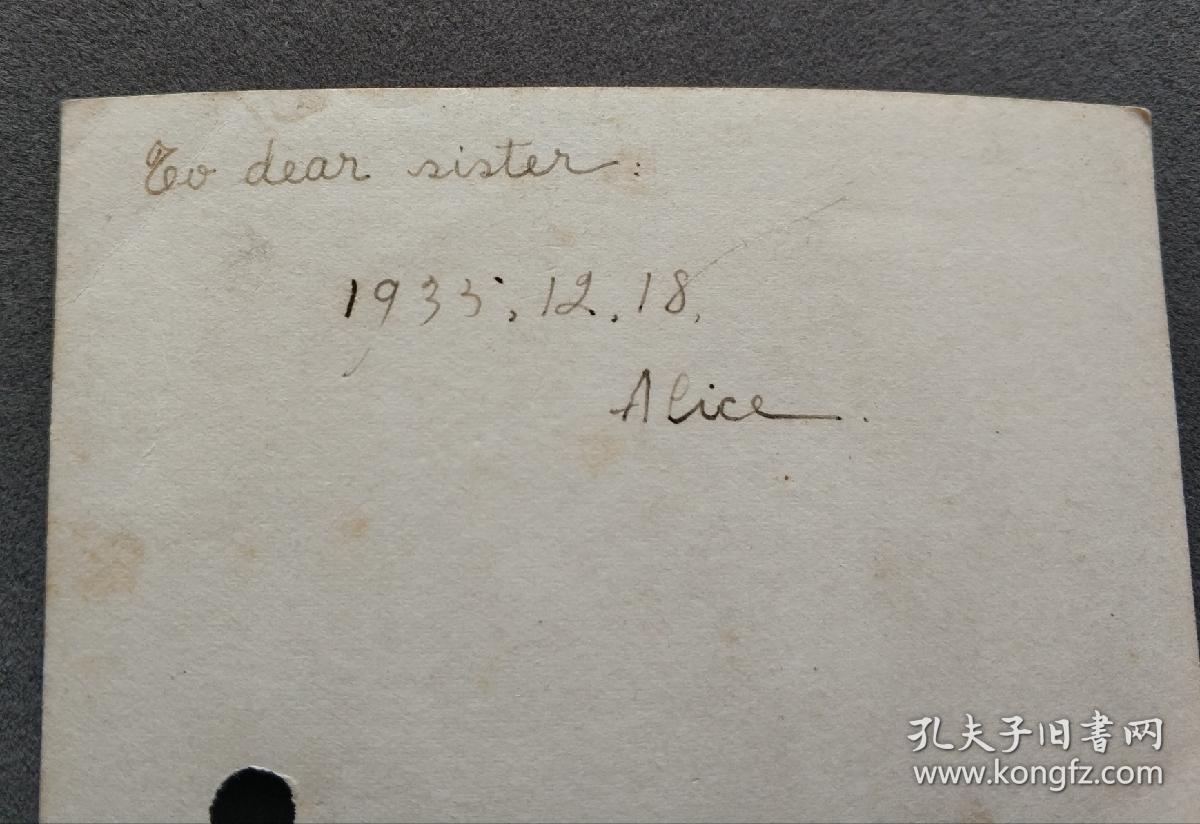 To dear sister:
1935, 12, 18,
Alice.
孔夫子旧書网
www.kongfz.com